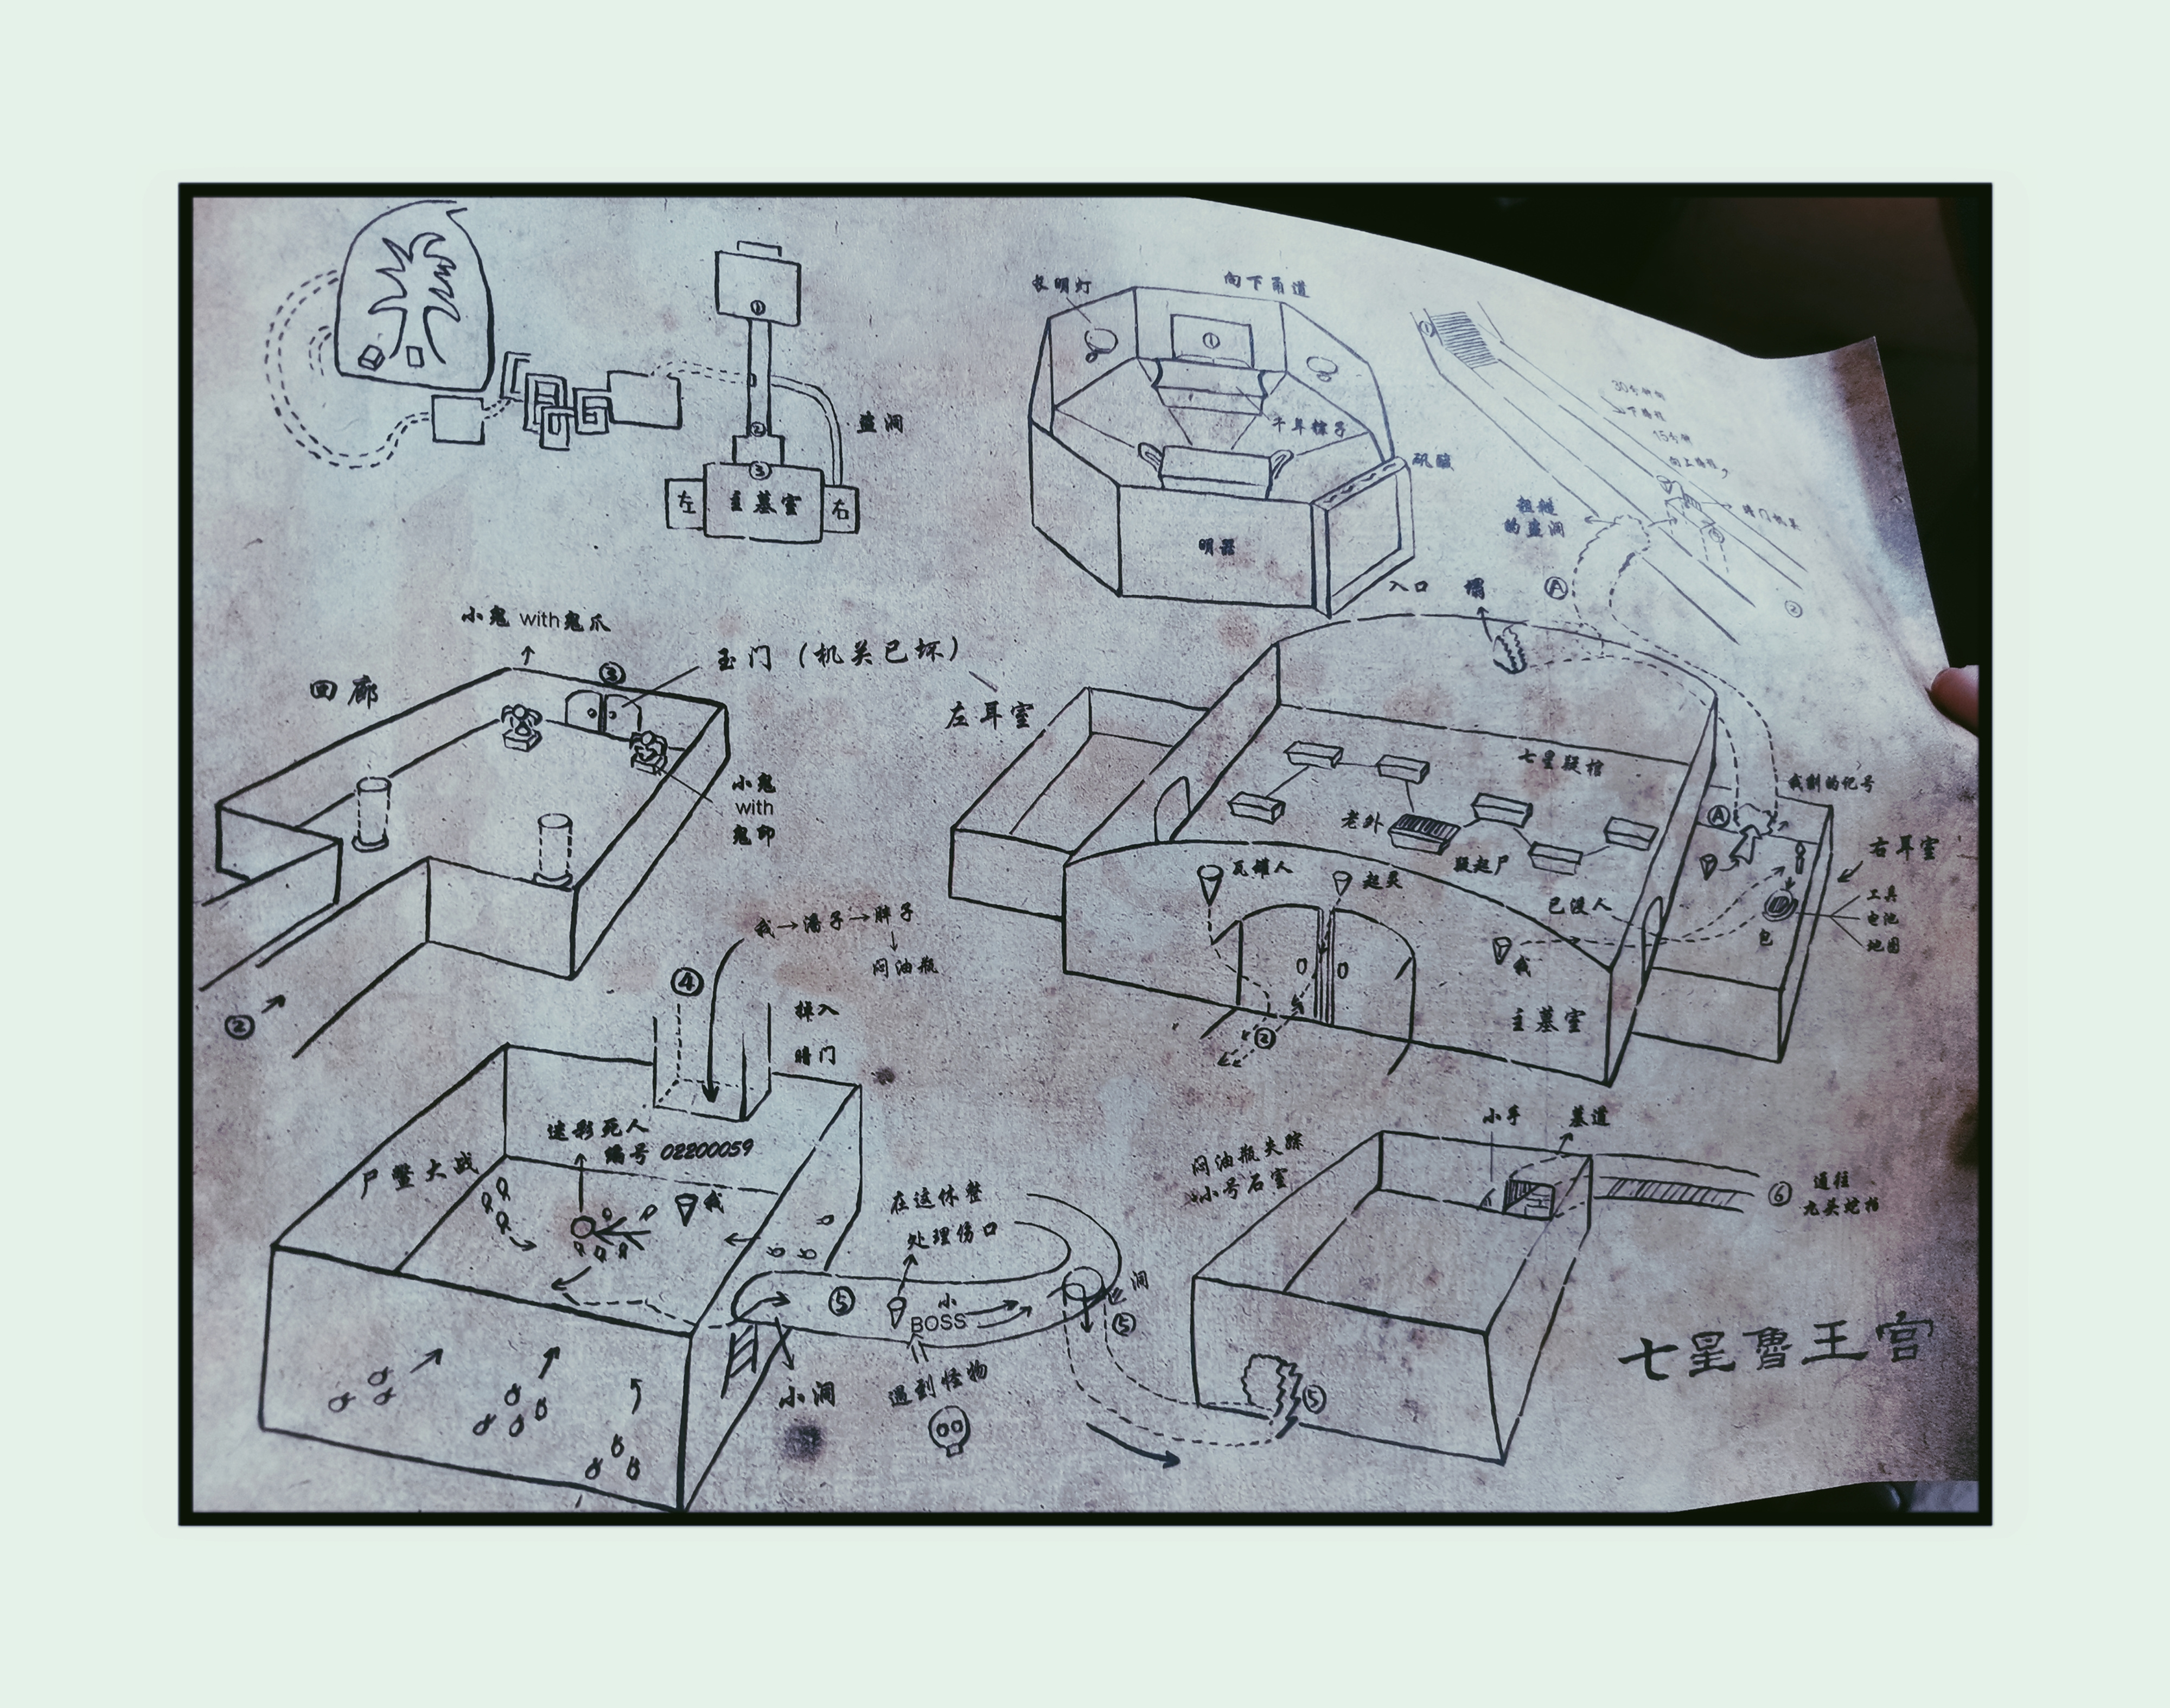 ①
②
③
左
主墓室
右
盗洞
长明灯
向下甬道
①
千年粽子
矾酸
明器
入口
①
下路程
15分钟
粗糙
的盗洞
暗门机关
②
塌
Ⓐ
小鬼 with鬼爪
③
玉门（机关已坏）
回廊
小鬼
with
鬼卵
②
左耳室
七星疑棺
老外
疑起尸
瓦罐人
起灵
已没人
我
②
主墓室
我刻的记号
Ⓐ
右耳室
工具
电池
地图
包
我→潘子→胖子
↓
闷油瓶
④
掉入
暗门
迷彩死人
编号 02200059
尸鳖大战
我
在这休整
处理伤口
⑤
小
BOSS
小洞
遇到怪物
洞
⑤
闷油瓶失踪
小号石室
小手
墓道
⑥
通往
九头蛇柏
⑤
七星鲁王宫